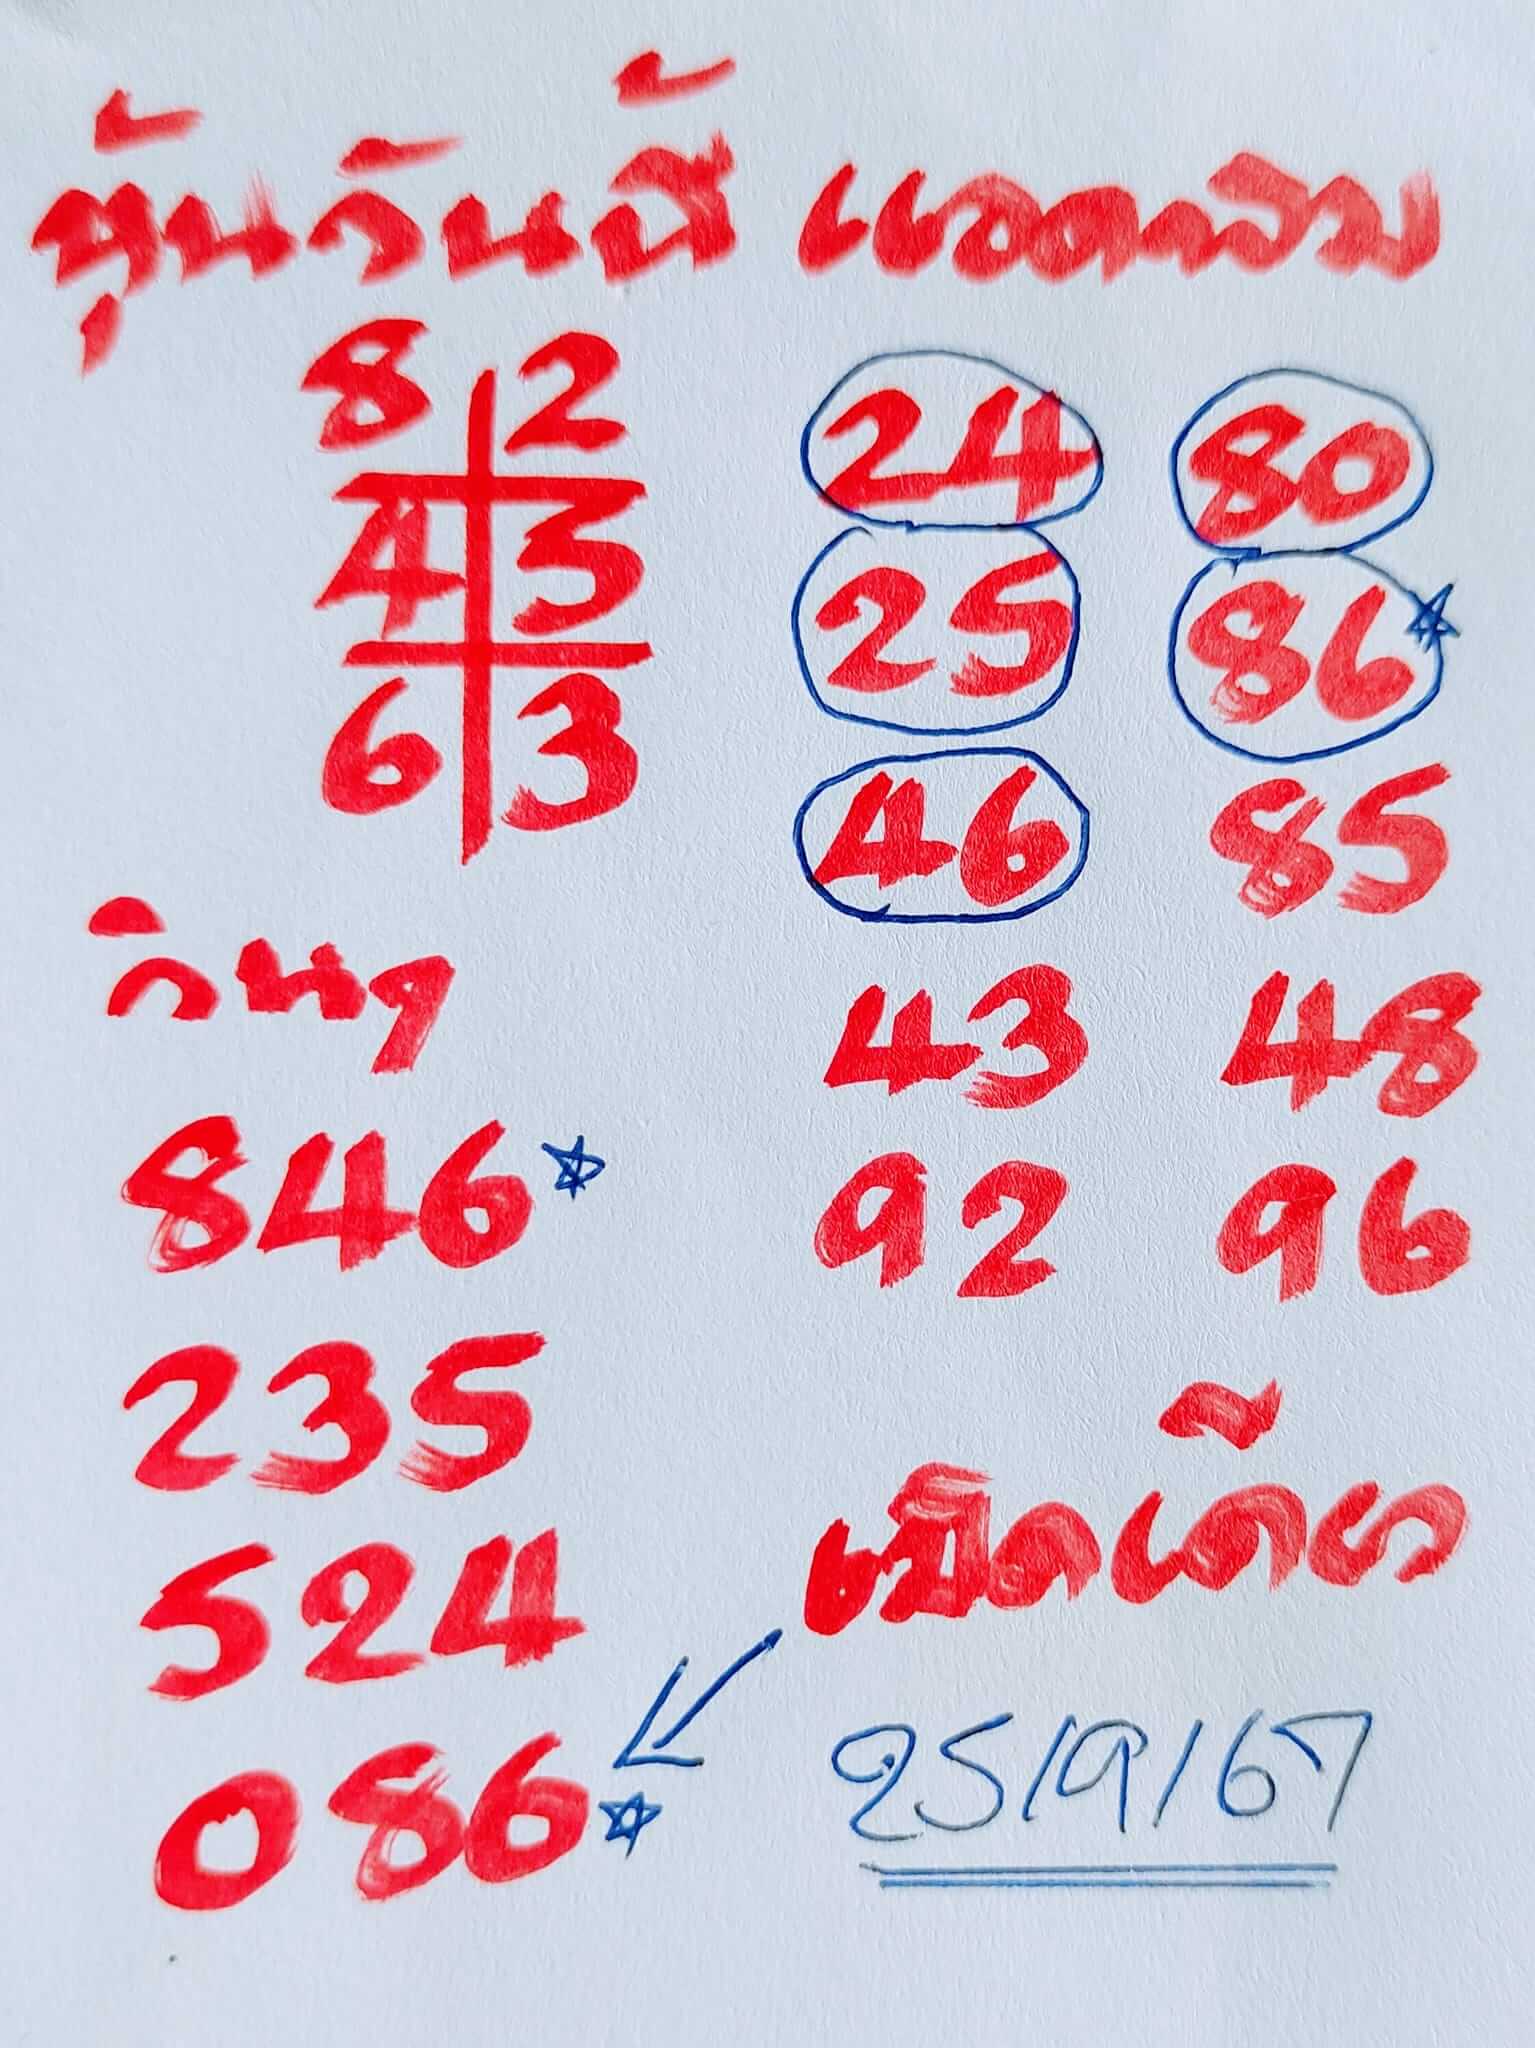 หุ้นวันนี้ แอดกลิ่ม
8 2
4 5
6 3
24 80
25 86
46 85
43 48
92 96
วินๆ
846
235
524
086
เม็ดเดียว
25/9/67